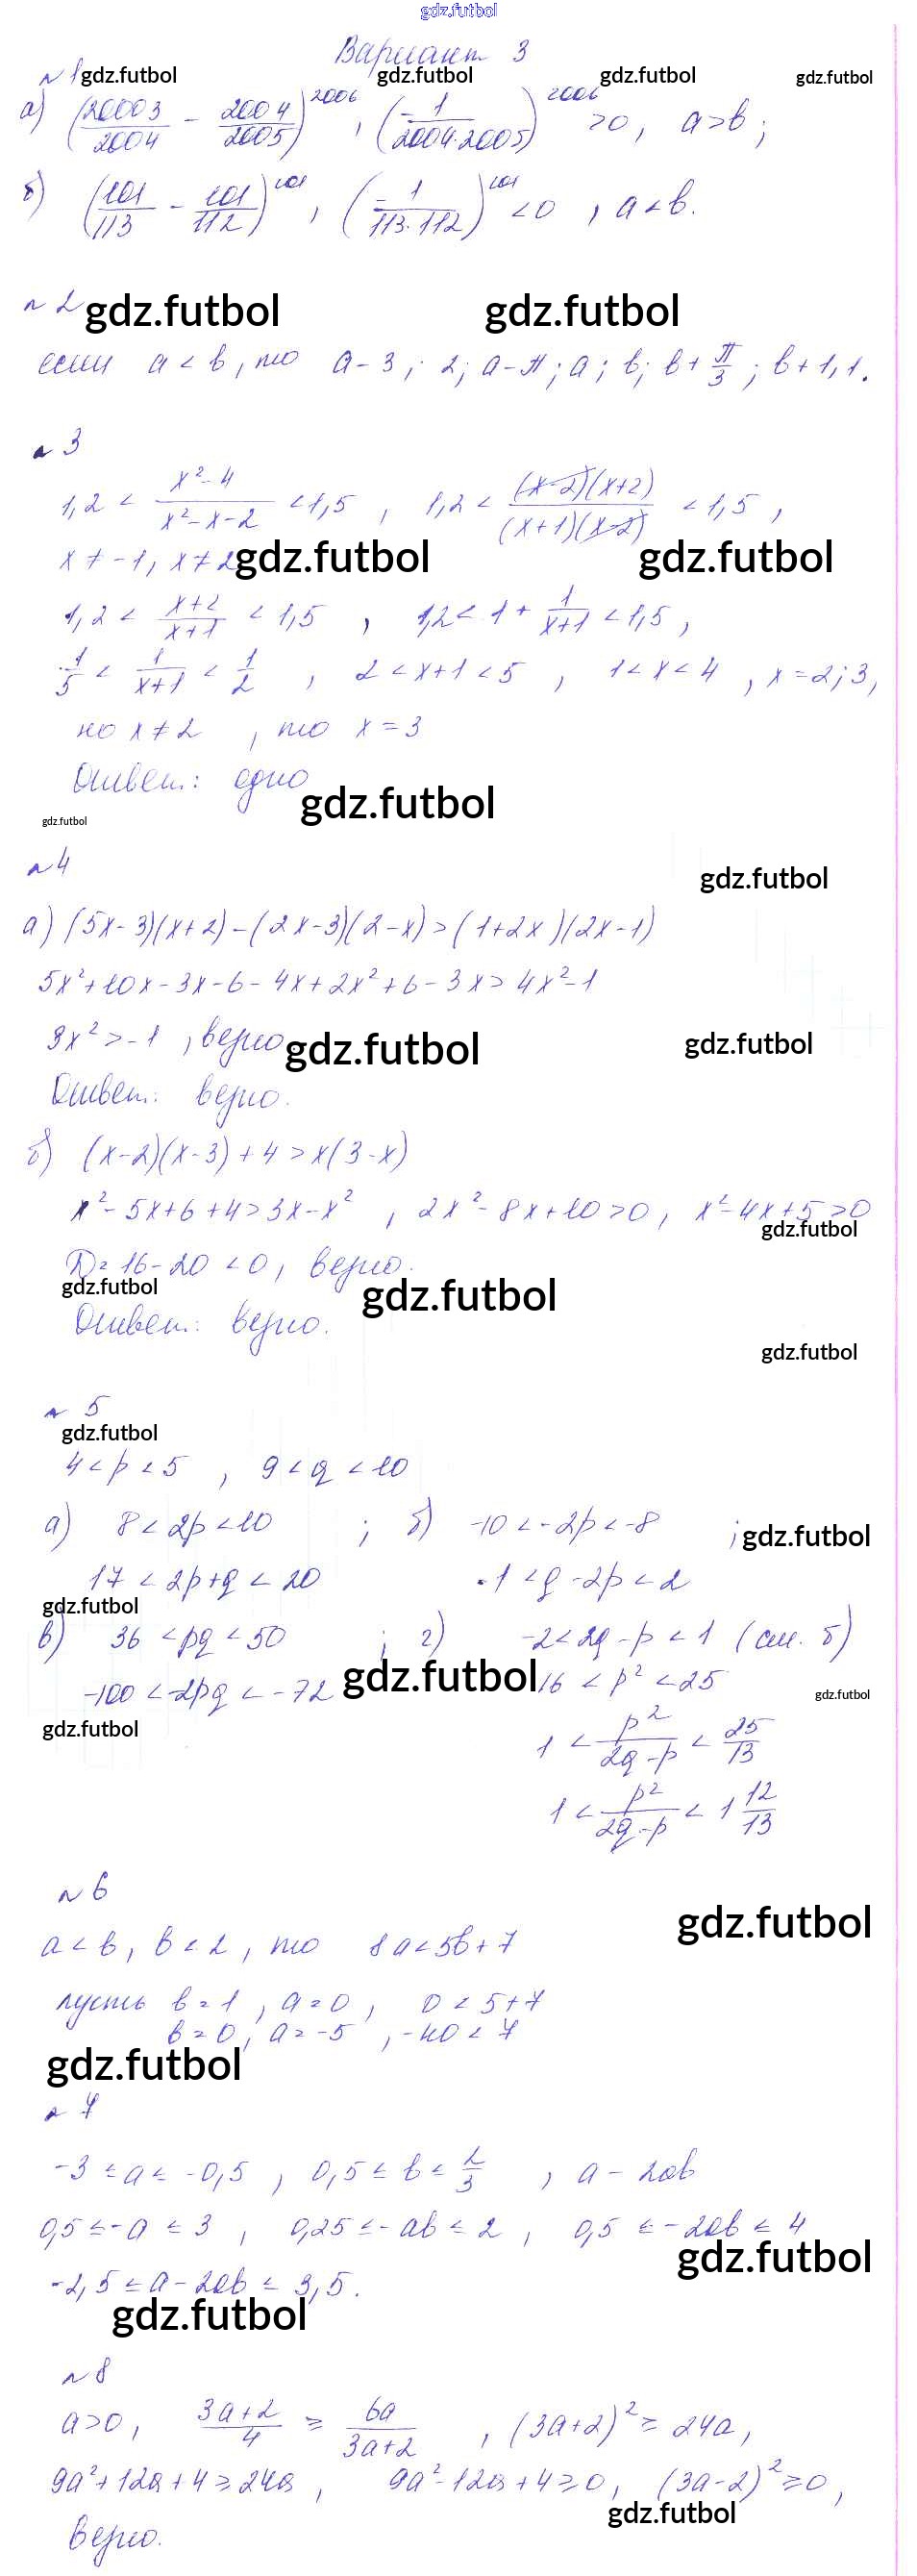 gdz.futbol
Вариант 3
n 1 gdz.futbol gdz.futbol gdz.futbol gdz.futbol
а) (20003/2004 - 2004/2005)^2006, (-1/2004·2005)^2006 >0, a>b;
б) (101/113 - 101/112)^101, (-1/113·112)^101 <0, a<b.
n 2 gdz.futbol gdz.futbol
если a<b, то a-3; 2; a-π; a; b; b+π/3; b+1,1.
n 3
1,2 < x²-4/x²-x-2 <1,5, 1,2 < (x-2)(x+2)/(x+1)(x-2) <1,5,
x≠-1, x≠2 gdz.futbol gdz.futbol
1,2 < x+2/x+1 < 1,5, 1,2 < 1 + 1/x+1 < 1,5,
1/5 < 1/x+1 < 1/2, 2 < x+1 < 5, 1<x<4, x=2;3,
но x≠2, то x=3
Ответ: одно
gdz.futbol
gdz.futbol
n 4
gdz.futbol
а) (5x-3)(x+2)-(2x-3)(2-x)>(1+2x)(2x-1)
5x²+10x-3x-6-4x+2x²+6-3x>4x²-1
3x²>-1, верно. gdz.futbol gdz.futbol
Ответ: верно.
б) (x-2)(x-3)+4>x(3-x)
x²-5x+6+4>3x-x², 2x²-8x+10>0, x²-4x+5>0
gdz.futbol
D=16-20<0, верно.
gdz.futbol gdz.futbol
Ответ: верно.
gdz.futbol
n 5
gdz.futbol
4<p<5, 9<q<10
а) 8<2p<10; б) -10<-2p<-8; gdz.futbol
17<2p+q<20 -1<q-2p<2
gdz.futbol
в) 36<pq<50; г) -2<2q-p<1 (см. б)
-100<-2pq<-72 gdz.futbol 16<p²<25
gdz.futbol
gdz.futbol
1 < p²/2q-p < 25/13
1 < p²/2q-p < 1 12/13
n 6
gdz.futbol
a<b, b<2, то 8a<5b+7
пусть b=1, a=0, 0<5+7
b=0, a=-5, -40<7
gdz.futbol
n 7
-3≤a≤-0,5, 0,5≤b≤2/3, a-2ab
0,5≤-a≤3, 0,25≤-ab≤2, 0,5≤-2ab≤4
gdz.futbol
-2,5≤a-2ab≤3,5.
gdz.futbol
n 8
a>0, 3a+2/4 ≥ 6a/3a+2, (3a+2)²≥24a,
9a²+12a+4≥24a, 9a²-12a+4≥0, (3a-2)²≥0,
gdz.futbol
верно.